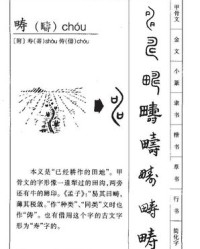 畴（疇）chóu
［附］寿（壽）shòu 俦（儔）chóu
本义是“已经耕作的田地”。甲
骨文的字形像一道犁过的田沟，两旁
还有牛的蹄印。《孟子》：“易其田畴，
薄其税敛。”作“种类”、“同类”义时也
作“俦”。也有借用这个字的古文字
形为“寿”字的。
甲骨文
金文
小篆
隶书
楷书
草书
行书
简化字
疇
疇
畴